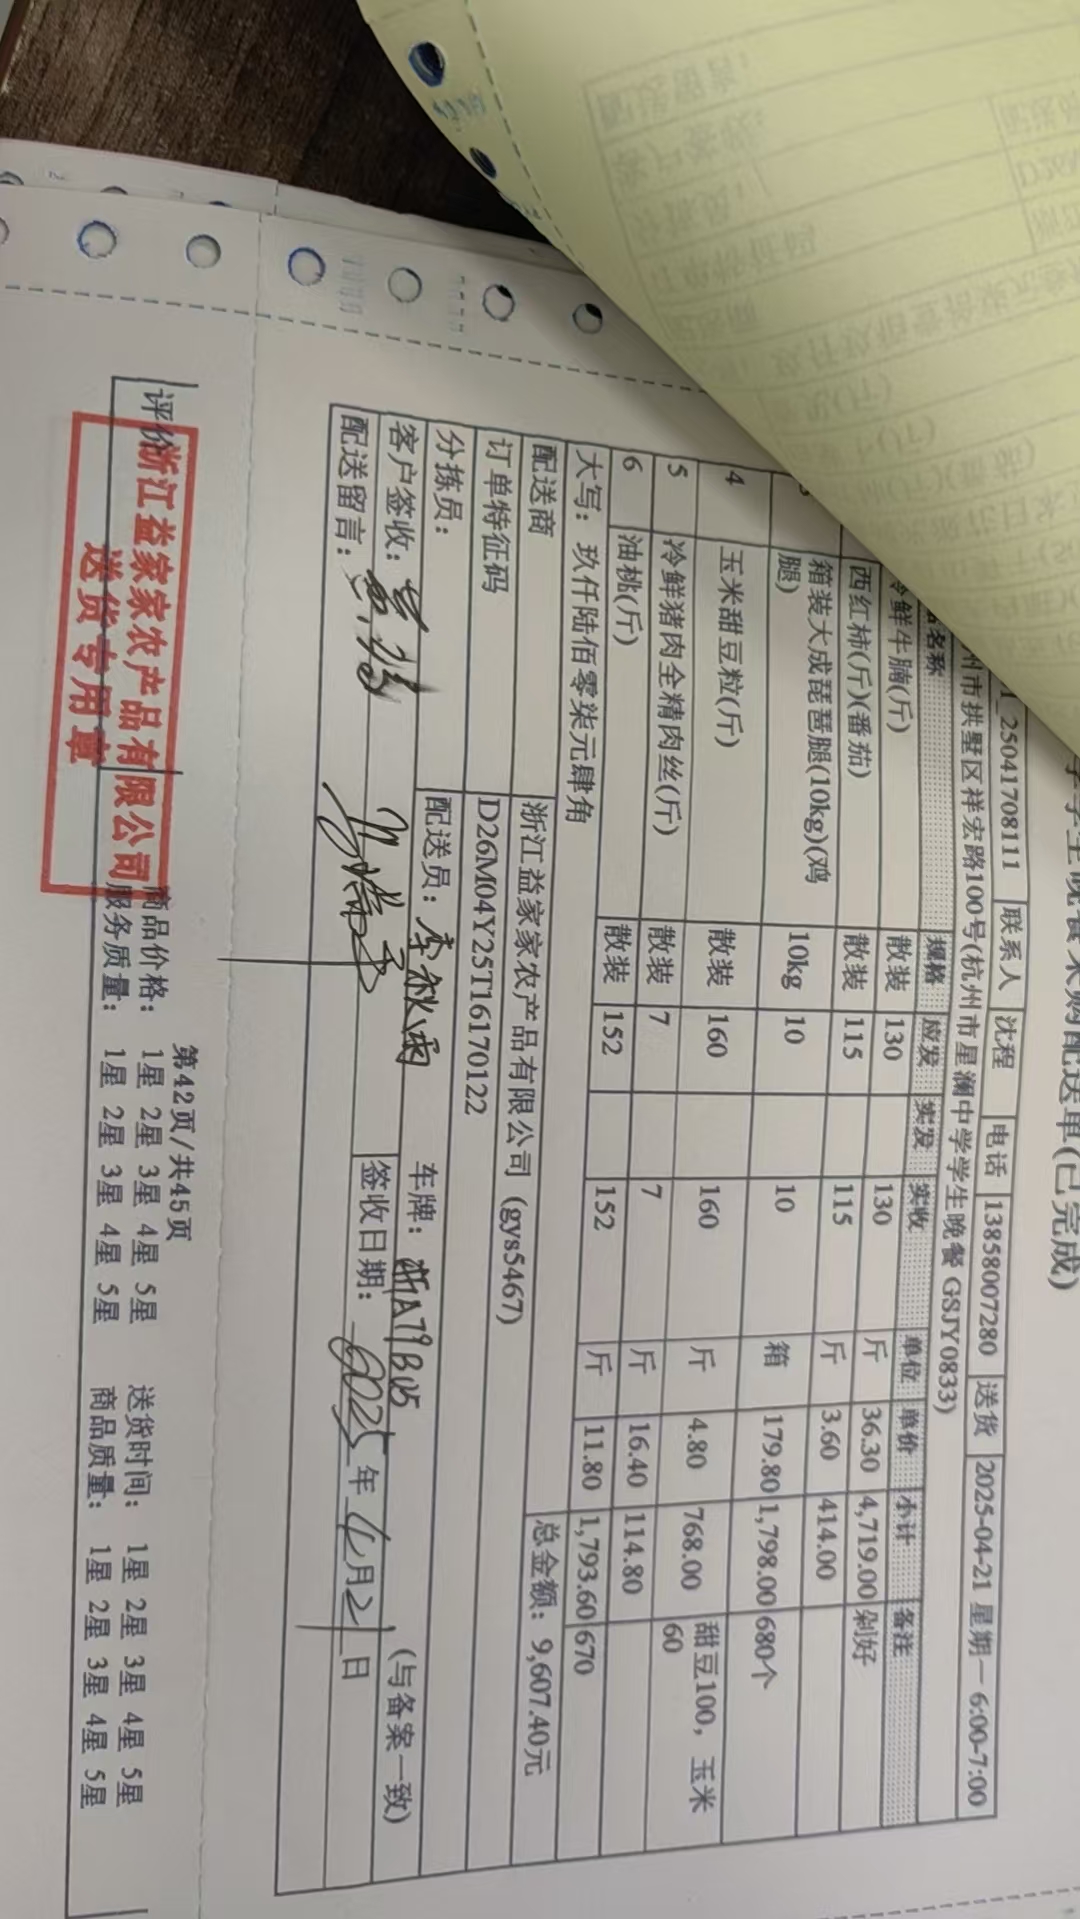 学生晚餐采购配送单(已完成)
1_25041708111 联系人 沈程 电话 13858007280 送货 2025-04-21 星期一 6:00-7:00
州市拱墅区祥宏路100号(杭州市星澜中学学生晚餐 GSJY0833)
名称 规格 应发 实发 实收 单位 单价 小计 备注
冷鲜牛腩(斤) 散装 130 130 斤 36.30 4,719.00 剁好
西红柿(斤)(番茄) 散装 115 115 斤 3.60 414.00
箱装大成琵琶腿(10kg)(鸡腿) 10kg 10 10 箱 179.80 1,798.00 680个
4 玉米甜豆粒(斤) 散装 160 160 斤 4.80 768.00 甜豆100，玉米60
5 冷鲜猪肉全精肉丝(斤) 散装 7 7 斤 16.40 114.80
6 油桃(斤) 散装 152 152 斤 11.80 1,793.60 670
大写：玖仟陆佰零柒元肆角 总金额：9,607.40元
配送商 浙江益家家农产品有限公司 (gys5467)
订单特征码 D26M04Y25T16170122
分拣员： 配送员：李秋雨 车牌：浙A79B05 (与备案一致)
客户签收： 签收日期：2025年4月21日
配送留言：
第42页/共45页
评价 商品价格： 1星 2星 3星 4星 5星 送货时间： 1星 2星 3星 4星 5星
服务质量： 1星 2星 3星 4星 5星 商品质量： 1星 2星 3星 4星 5星
浙江益家家农产品有限公司
送货专用章